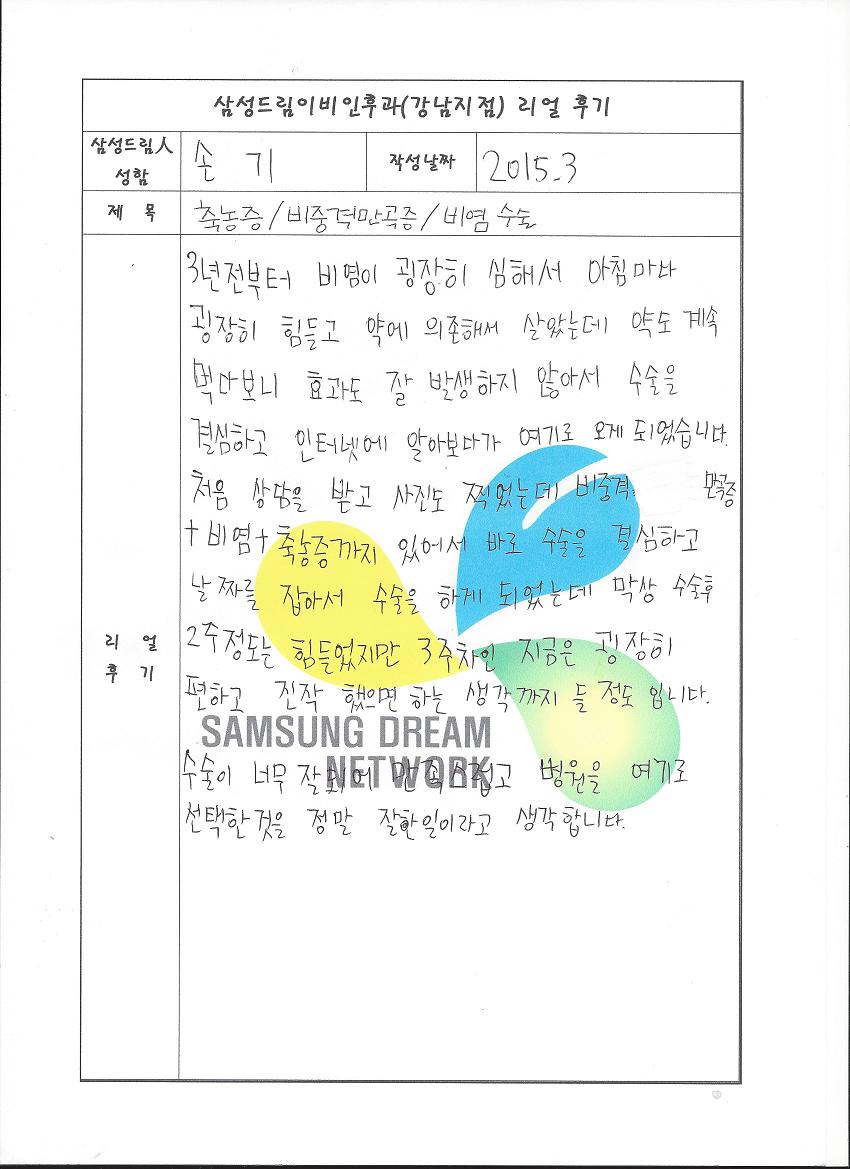 삼성드림이비인후과(강남지점) 리얼 후기
삼성드림人 성함
손 기
작성날짜
2015.3
제 목
축농증/비중격만곡증/비염 수술
리 얼 후 기
3년전부터 비염이 굉장히 심해서 아침마다
굉장히 힘들고 약에 의존해서 살았는데 약도 계속
먹다보니 효과도 잘 발생하지 않아서 수술을
결심하고 인터넷에 알아보다가 여기로 오게 되었습니다.
처음 상담을 받고 사진도 찍었는데 비중격 만곡증
+비염+축농증까지 있어서 바로 수술을 결심하고
날짜를 잡아서 수술을 하게 되었는데 막상 수술후
2주정도는 힘들었지만 3주차인 지금은 굉장히
편하고 진작 했으면 하는 생각까지 들 정도 입니다.
SAMSUNG DREAM
NETWORK
수술이 너무 잘되어 만족스럽고 병원을 여기로
선택한것을 정말 잘한일이라고 생각합니다.